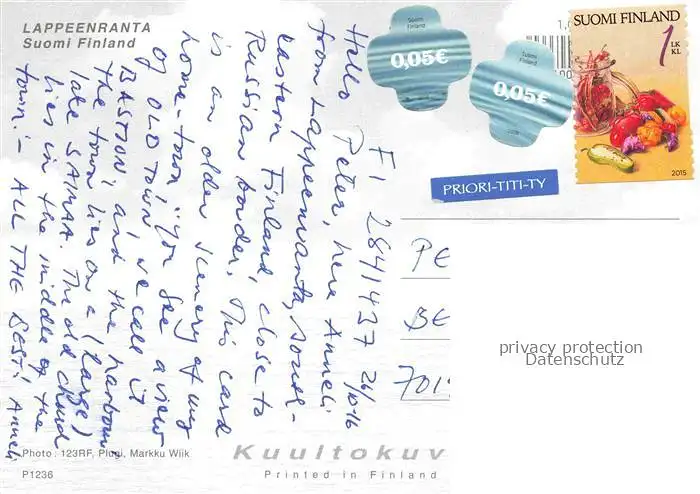 LAPPEENRANTA
Suomi Finland
FI 2841437 26/10-16
Hello Peter, here Anneli
from Lappeenranta, south-
eastern Finland, close to
Russian border. This card
is an older scenery of my
home-town: you see a view
of OLD TOWN, we call it
BASTION and the harbour,
the town lies on a (large)
lake SAIMAA. The old church
lies in the middle of the
town :- ALL THE BEST! Anneli
Suomi
Finland
0,05€
Suomi
Finland
0,05€
1,0
SUOMI FINLAND
1 LK
KL
2015
PRIORI-TITI-TY
PE
BE
701
privacy protection
Datenschutz
Photo : 123RF, Plugi, Markku Wiik
P1236
Kuultokuv
Printed in Finland